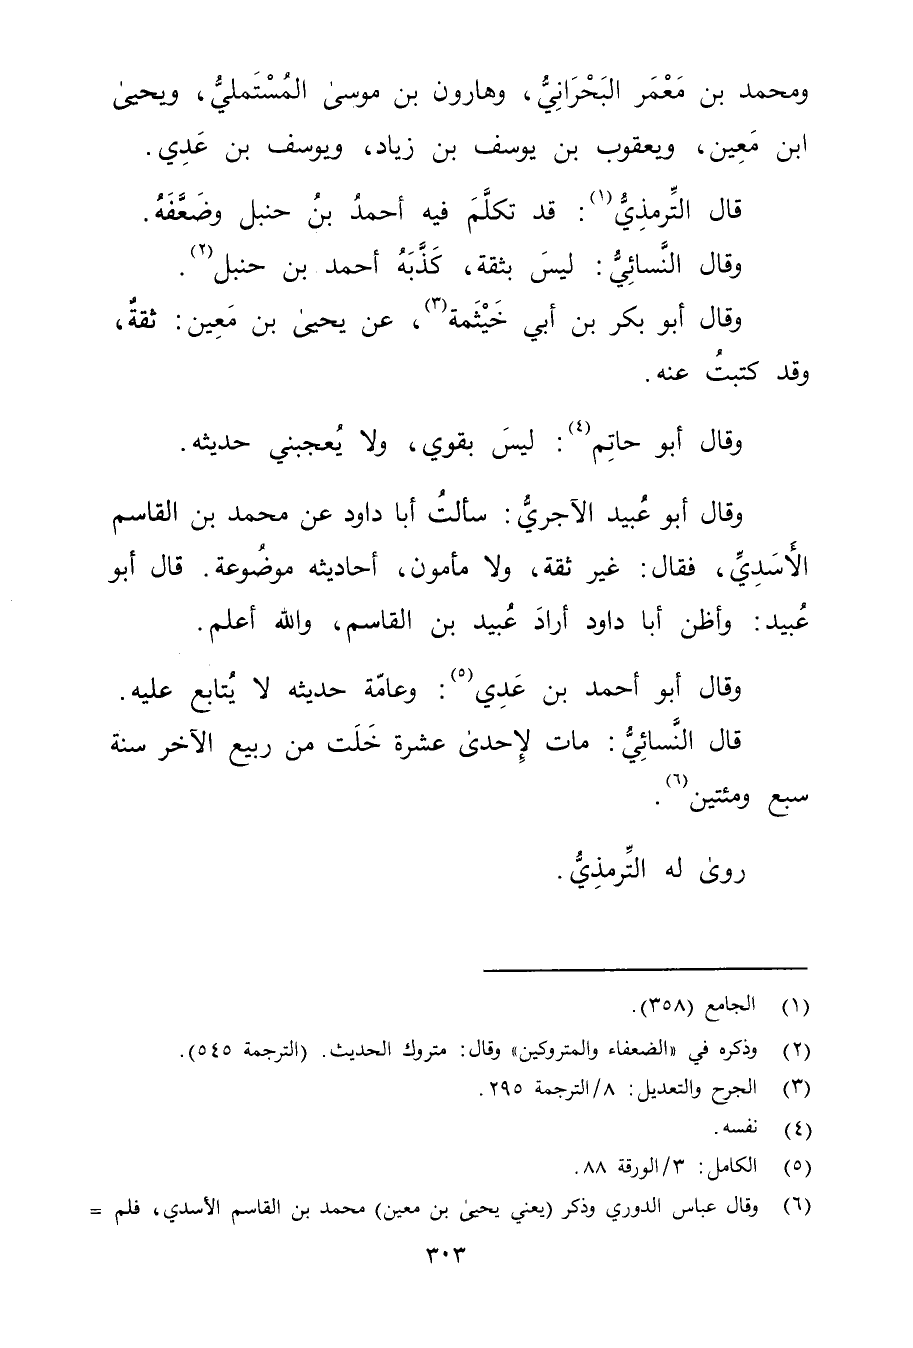 ومحمد بن مَعْمَر البَحْرَانِيُّ، وهارون بن موسىٰ المُسْتَمليُّ، ويحيىٰ
ابن مَعِين، ويعقوب بن يوسف بن زياد، ويوسف بن عَدِي.
قال التِّرمِذيُّ(١): قد تكلَّمَ فيه أحمدُ بنُ حنبل وضَعَّفَهُ.
وقال النَّسائِيُّ: ليسَ بثقة، كَذَّبَهُ أحمد بن حنبل(٢).
وقال أبو بكر بن أبي خَيْثَمة(٣)، عن يحيىٰ بن مَعِين: ثقةٌ،
وقد كتبتُ عنه.
وقال أبو حاتِم(٤): ليسَ بقوي، ولا يُعجبني حديثه.
وقال أبو عُبيد الآجريُّ: سألتُ أبا داود عن محمد بن القاسم
الأَسَدِيِّ، فقال: غير ثقة، ولا مأمون، أحاديثه موضُوعة. قال أبو
عُبيد: وأظن أبا داود أرادَ عُبيد بن القاسم، والله أعلم.
وقال أبو أحمد بن عَدِي(٥): وعامّة حديثه لا يُتابع عليه.
قال النَّسائِيُّ: مات لإِحدىٰ عشرة خَلَت من ربيع الآخر سنة
سبع ومئتين(٦).
روىٰ له التِّرمِذيُّ.
(١) الجامع (٣٥٨).
(٢) وذكره في «الضعفاء والمتروكين» وقال: متروك الحديث. (الترجمة ٥٤٥).
(٣) الجرح والتعديل: ٨/الترجمة ٢٩٥.
(٤) نفسه.
(٥) الكامل: ٣/الورقة ٨٨.
(٦) وقال عباس الدوري وذكر (يعني يحيىٰ بن معين) محمد بن القاسم الأسدي، فلم =
٣٠٣